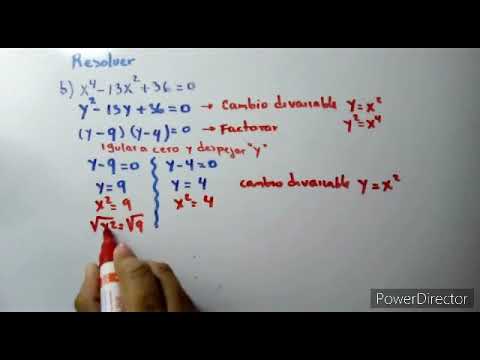 Resolver
b) x⁴-13x²+36=0
y²-13y+36=0 → Cambio de variable y=x²
y²=x⁴
(y-9)(y-4)=0 → Factorar
Igular a cero y despejar "y"
y-9=0 y-4=0
y=9 y=4 cambio de variable y=x²
x²=9 x²=4
√x²=√9
PowerDirector